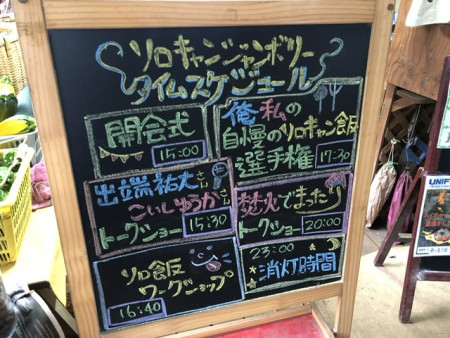 ソロキャンジャンボリー
タイムスケジュール
開会式
15:00
俺私の
自慢のソロキャン飯
選手権
17:30
出端祐大さん
こいしゆうかさん
トークショー
15:30
焚火でまったり
トークショー
20:00
ソロ飯
ワークショップ
16:40
23:00
消灯時間
UNIF